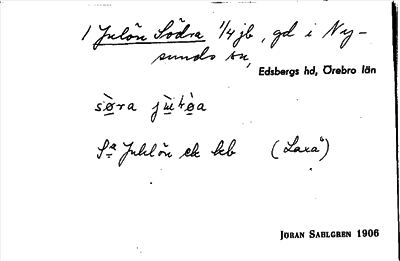 1 Julön Södra 1/4 jb, gd i Ny-
sunds sn,
Edsbergs hd, Örebro län
sø̀ra
Sa Juhlön ek kb (Laxå)
JÖRAN SAHLGREN 1906